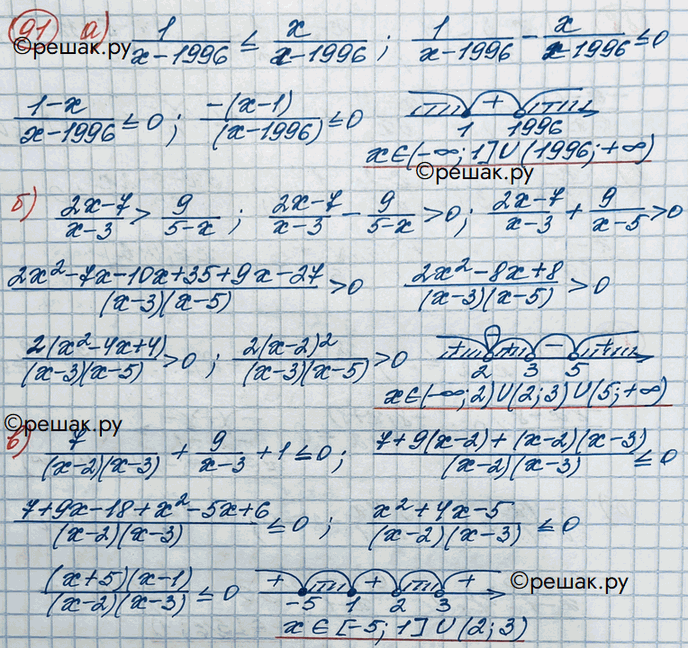 91 а) 1/(x-1996) ≤ x/(x-1996) ; 1/(x-1996) - x/(x-1996) ≤ 0
©решак.ру
(1-x)/(x-1996) ≤ 0 ; -(x-1)/(x-1996) ≤ 0 + 1 1996
x ∈ (-∞; 1] ∪ (1996; +∞)
©решак.ру
б) (2x-7)/(x-3) > 9/(5-x) ; (2x-7)/(x-3) - 9/(5-x) > 0 ; (2x-7)/(x-3) + 9/(x-5) > 0
(2x²-7x-10x+35+9x-27)/((x-3)(x-5)) > 0 (2x²-8x+8)/((x-3)(x-5)) > 0
2(x²-4x+4)/((x-3)(x-5)) > 0 ; 2(x-2)²/((x-3)(x-5)) > 0 + - + - + 2 3 5
x ∈ (-∞; 2) ∪ (2; 3) ∪ (5; +∞)
©решак.ру
в) 7/((x-2)(x-3)) + 9/(x-3) + 1 ≤ 0 ; (7+9(x-2)+(x-2)(x-3))/((x-2)(x-3)) ≤ 0
(7+9x-18+x²-5x+6)/((x-2)(x-3)) ≤ 0 ; (x²+4x-5)/((x-2)(x-3)) ≤ 0
((x+5)(x-1))/((x-2)(x-3)) ≤ 0 + + + -5 1 2 3
©решак.ру
x ∈ [-5; 1] ∪ (2; 3)